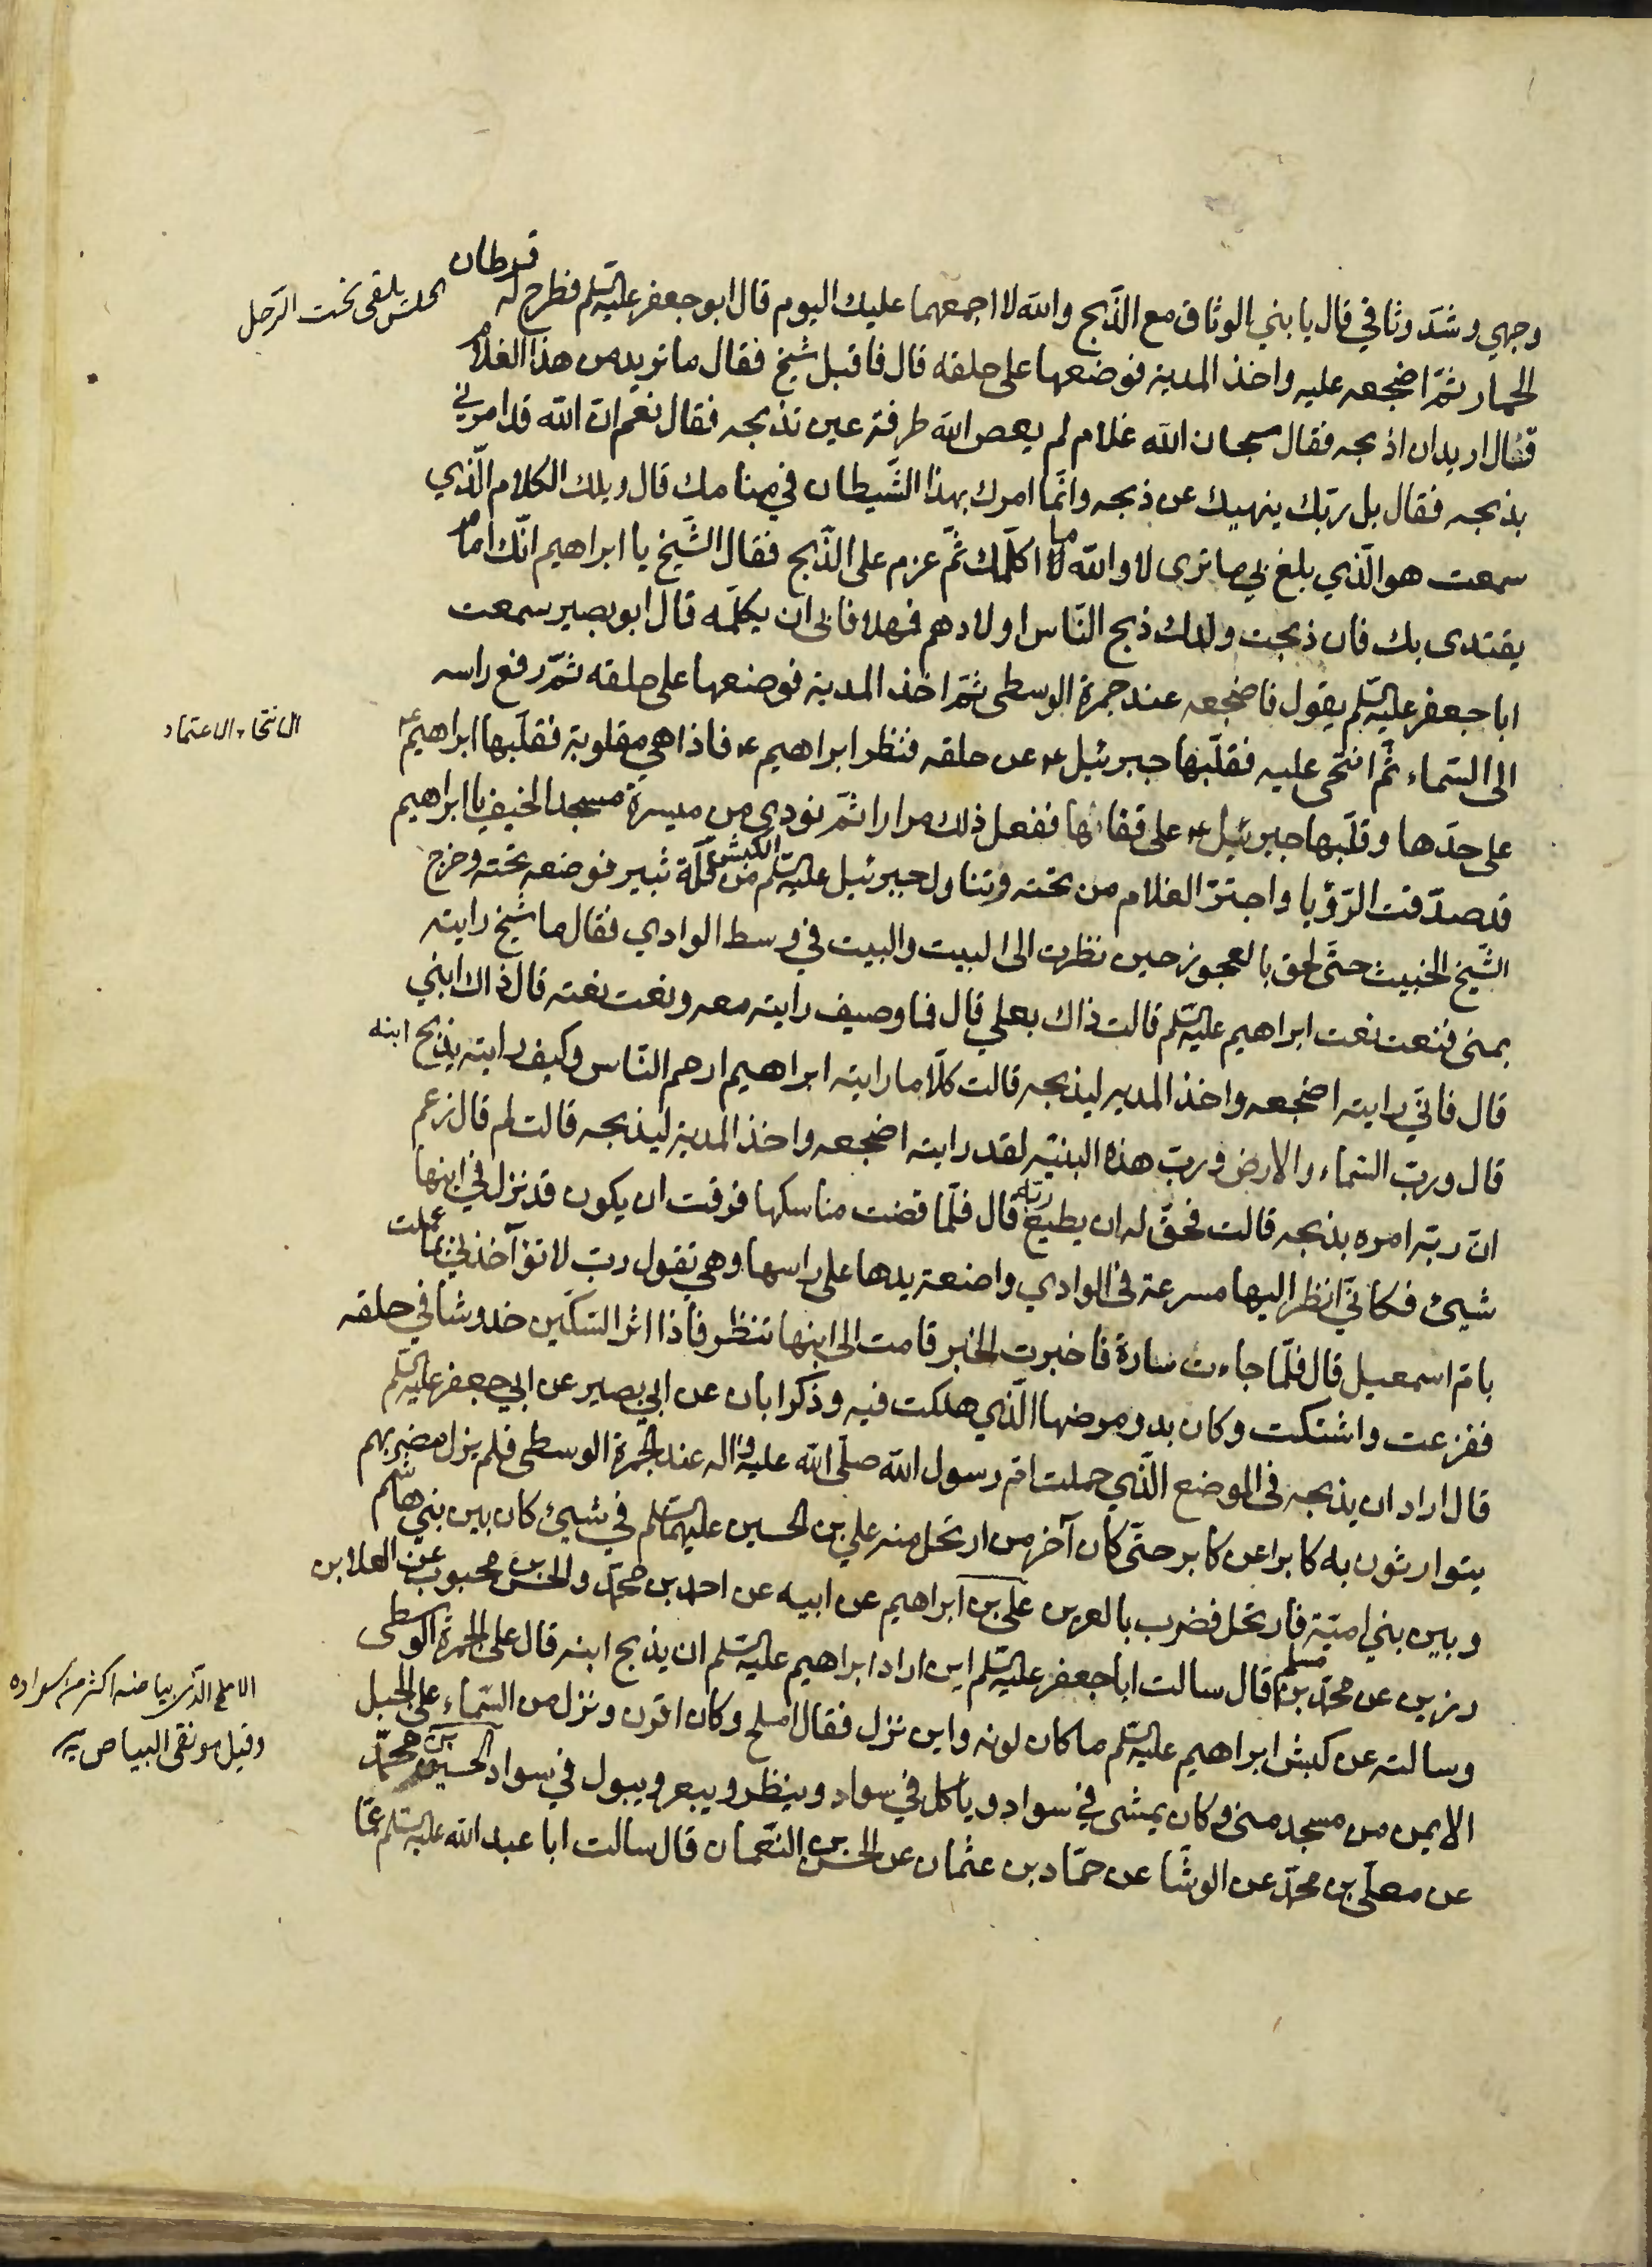 وجهي وشدّ وثاقي قال يا بني الوثاق مع الذّبح والله لا اجمعهما عليك اليوم قال ابو جعفر عليه السّلم فطرح له قرطان
الحلس يلقى تحت الرّحل
الحمار ثمّ اضجعه عليه واخذ المدية فوضعها على حلقه قال فاقبل شيخ فقال ما تريد من هذا الغلام
فقال اريد ان اذبحه فقال سبحان الله غلام لم يعص الله طرفة عين تذبحه فقال نعم انّ الله قد امرني
بذبحه فقال بل ربّك ينهيك عن ذبحه وانّما امرك بهذا الشّيطان في منامك قال ويلك الكلام الّذي
سمعت هو الّذي بلغ بي ما ترى لا والله لا اكلّمك ثمّ عزم على الذّبح فقال الشّيخ يا ابراهيم انّك امام
يقتدى بك فان ذبحت ولدك ذبح النّاس اولادهم فمهلا فابى ان يكلّمه قال ابو بصير سمعت
ابا جعفر عليه السّلم يقول فاضجعه عند جمرة الوسطى ثمّ اخذ المدية فوضعها على حلقه ثمّ رفع راسه
الى السّماء ثمّ انتحى عليه فقلّبها جبرئيل ع عن حلقه فنظر ابراهيم ع فاذا هي مقلوبة فقلّبها ابراهيم ع
الانتحاء الاعتماد
على حدّها وقلّبها جبرئيل ع على قفائها ففعل ذلك مرارا ثمّ نودي من ميسرة مسجد الخيف يا ابراهيم
قد صدّقت الرّؤيا واجترّ الغلام من تحته وتناول جبرئيل عليه السّلم الكبش من قلّة ثبير فوضعه تحته وخرج
الشّيخ الخبيث حتّى لحق بالعجوز حين نظرت الى البيت والبيت في وسط الوادي فقال ما شيخ رايته
بمنى فنعت نعت ابراهيم عليه السّلم قالت ذاك بعلي قال فما وصيف رايته معه ونعت نعته قال ذاك ابني
قال فانّي رايته اضجعه واخذ المدية ليذبحه قالت كلّا ما رايته ابراهيم ارحم النّاس وكيف رايته يذبح ابنه
قال وربّ السّماء والارض وربّ هذه البنيّة لقد رايته اضجعه واخذ المدية ليذبحه قالت لم قال زعم
انّ ربّه امره بذبحه قالت فحقّ له ان يطيع ربّه قال فلمّا قضت مناسكها فرقت ان يكون قد نزل في ابنها
شيئ فكانّي انظر اليها مسرعة في الوادي واضعة يدها على راسها وهي تقول ربّ لا تؤآخذني بما عملت
بامّ اسمعيل قال فلمّا جاءت سارة فاخبرت الخبر قامت الى ابنها تنظر فاذا اثر السّكّين خدوشا في حلقه
ففزعت واشتكت وكان بدو مرضها الّذي هلكت فيه وذكر ابان عن ابي بصير عن ابي جعفر عليه السّلم
قال اراد ان يذبحه في الموضع الّذي حملت امّ رسول الله صلّى الله عليه واله عند الجمرة الوسطى فلم يزل مضربهم
يتوارثون به كابرا عن كابر حتّى كان آخر من ارتحل منه علي بن الحسين عليهما السّلم في شيئ كان بين بني هاشم
وبين بني اميّة فارتحل فضرب بالعرين على بن ابراهيم عن ابيه عن احمد بن محمّد والحسن بن محبوب عن العلا بن
رزين عن محمّد بن مسلم قال سالت ابا جعفر عليه السّلم اين اراد ابراهيم عليه السّلم ان يذبح ابنه قال على الجمرة الوسطى
وسالته عن كبش ابراهيم عليه السّلم ما كان لونه واين نزل فقال املح وكان اقرن ونزل من السّماء على الجبل
الاملح الذى بياضه اكثر من سواده
وقيل هو نقى البياض
الايمن من مسجد منى وكان يمشى في سواد وياكل في سواد وينظر ويبعر ويبول في سواد الحسين بن محمّد
عن معلّى بن محمّد عن الوشّا عن حمّاد بن عثمان عن الحسن بن النّعمان قال سالت ابا عبد الله عليه السّلم عمّا